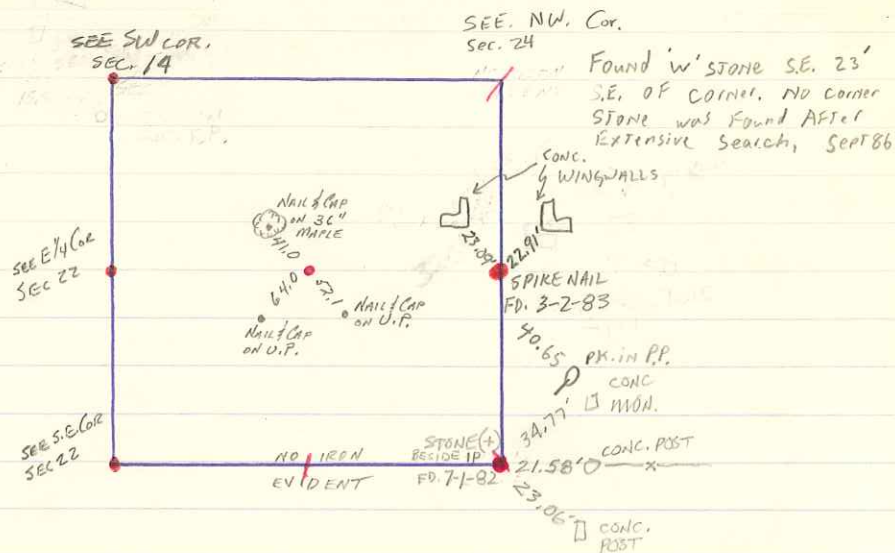 SEE SW COR.
SEC. 14
SEE. NW. Cor.
Sec. 24
Found 'W' STONE S.E. 23'
S.E. OF CORNER. NO CORNER
STONE was Found AFTER
EXTENSIVE Search, SEPT 86
CONC.
WINGWALLS
NAIL & CAP
ON 36"
MAPLE
41.0
23.09'
22.91'
SEE E 1/4 COR
SEC 22
64.0
52.1
NAIL & CAP
ON U.P.
NAIL & CAP
ON U.P.
SPIKE NAIL
FD. 3-2-83
40.65
PK. in P.P.
CONC
MON.
34.77'
SEE S.E. COR
SEC 22
NO IRON
EVIDENT
STONE (+)
BESIDE IP
FD. 7-1-82
21.58'
CONC. POST
23.06'
CONC.
POST